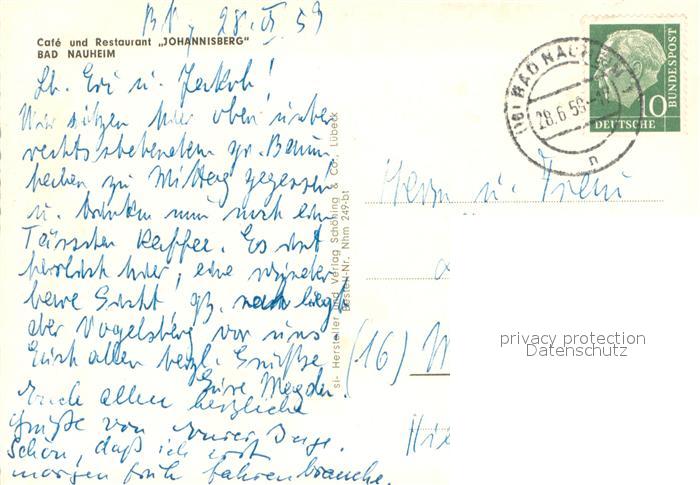 28. VI 59
Café und Restaurant „JOHANNISBERG"
BAD NAUHEIM
Lb. Evi u. Jakob!
Wir sitzen hier oben unter
rechtsstehendem gr. Baum,
haben zu Mittag gegessen
u. trinken nun noch ein
Tässchen Kaffee. Es ist
herrlich hier, eine wunder-
bare Sicht
der Vogelsberg vor uns
Euch allen herzl. Grüsse
Eure
Euch allen herzliche
Grüße von Eurer Inge.
Schön, daß ich erst
morgen früh fahren brauche.
si- Hersteller und Verlag Schöning & Co., Lübeck
Bestell-Nr. Nhm 249-bt
(16) BAD NAUHEIM 1
28.6.59
n
10
DEUTSCHE
BUNDESPOST
Herrn u. Frau
(16)
privacy protection
Datenschutz